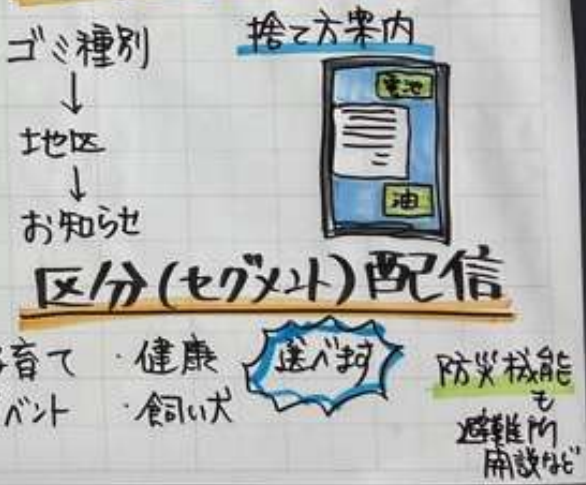 ゴミ種別
↓
地区
↓
お知らせ
捨て方案内
電池
油
区分(セグメント)配信
子育て ・健康
ベント ・飼い犬
選べます
防災機能
も
避難所
開設など